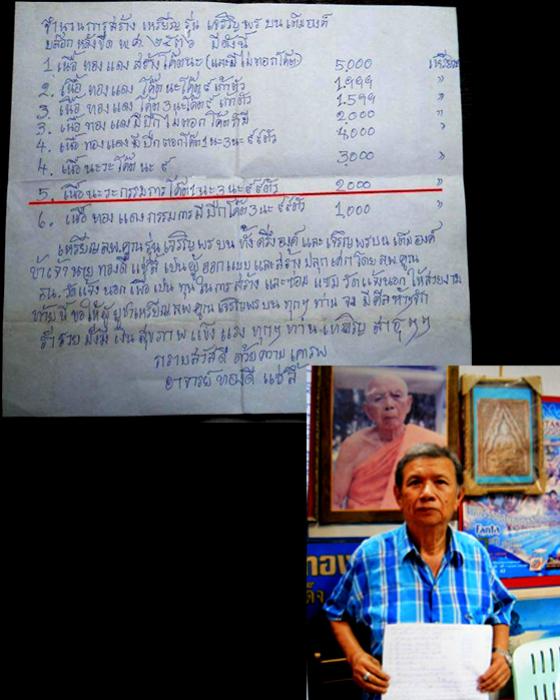 จำนวนการสร้าง เหรียญ รุ่น เจริญพร บน เต็มองค์
บล็อก หลังขีด พ.ศ. ๒๕๓๖ มีดังนี้
1. เนื้อ ทองแดง สร้างโค๊ตนะ (และมีไม่ตอกโค๊ต) 5,000 เหรียญ
2. เนื้อ ทองแดง โค๊ตนะโค๊ต๙ เก้าตัว 1,999 "
3. เนื้อ ทองแดง โค๊ต3นะโค๊ต๙ เก้าตัว 1,599 "
3. เนื้อ ทองแดง มีปีกไม่ตอกโค๊ตก็มี 2,000 "
4. เนื้อ ทองแดง มีปีกตอกโค๊ต1นะ3นะ๙๙ตัว 4,000 "
4. เนื้อ นะวะโค๊ต นะ ๙ 3,000 "
5. เนื้อนะวะกรรมการโค๊ต1นะ3นะ๙๙ตัว 2,000 "
6. เนื้อ ทองแดง กรรมการมีปีกโค๊ต3นะ๙๙ตัว 1,000 "
เหรียญลพ.คูณรุ่นเจริญพรบน ทั้งครึ่งองค์ และเจริญพรบนเต็มองค์
ข้าเจ้า นาย ทองดี แซ่ลี้ เป็นผู้ออกแบบและสร้าง ปลุกเสกโดย ลพ.คูณ
ณ. วัดแจ้งนอก เพื่อเป็นทุนในการสร้าง และซ่อมแซม วัดแจ้งนอกให้สวยงาม
ท้ายนี้ ขอให้ผู้บูชาเหรียญลพ.คูณเจริญพรบนทุกๆ ท่าน จง มีศีล
ร่ำรวย มั่งมี เงิน สุขภาพ แข็งแรง ทุกๆ ท่าน เทอญ สาธุๆๆ
กราบสวัสดี ด้วยความเคารพ
อาจารย์ ทองดี แซ่ลี้
Fanta
ทอง